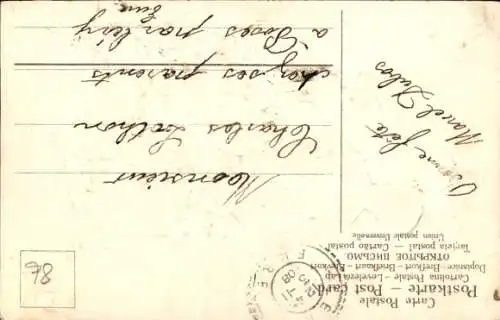 Carte Postale
Postkarte — Post card
Cartolina Postale — Levelező-Lap
Dopisnice — Brefkort — Briefkaart — Brevkort
ОТКРЫТОЕ ПИСЬМО
Tarjeta postal — Cartão postal
Union postale Universelle
Bonne fête
Marcel Dubos
Monsieur
Charles
chez ses parents
à Poses par
Eure
78